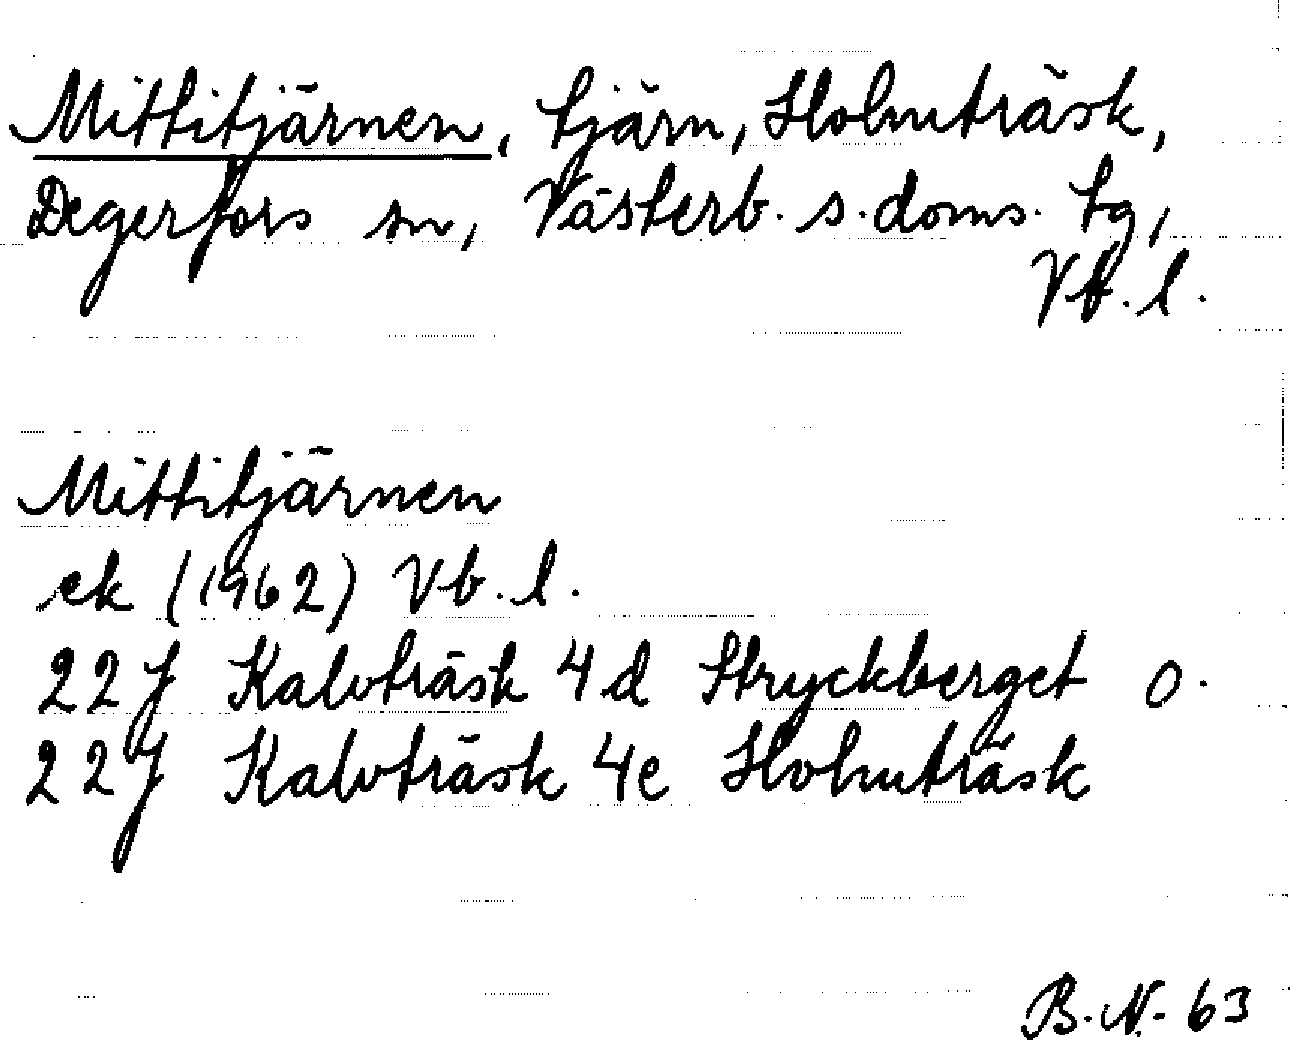 Mittitjärnen, tjärn, Holmträsk,
Degerfors sn, Västerb. s. doms. tg,
Vb. l.
Mittitjärnen
ek (1962) Vb. l.
22J Kalvträsk 4d Stryckberget o.
22J Kalvträsk 4e Holmträsk
B. N. 63